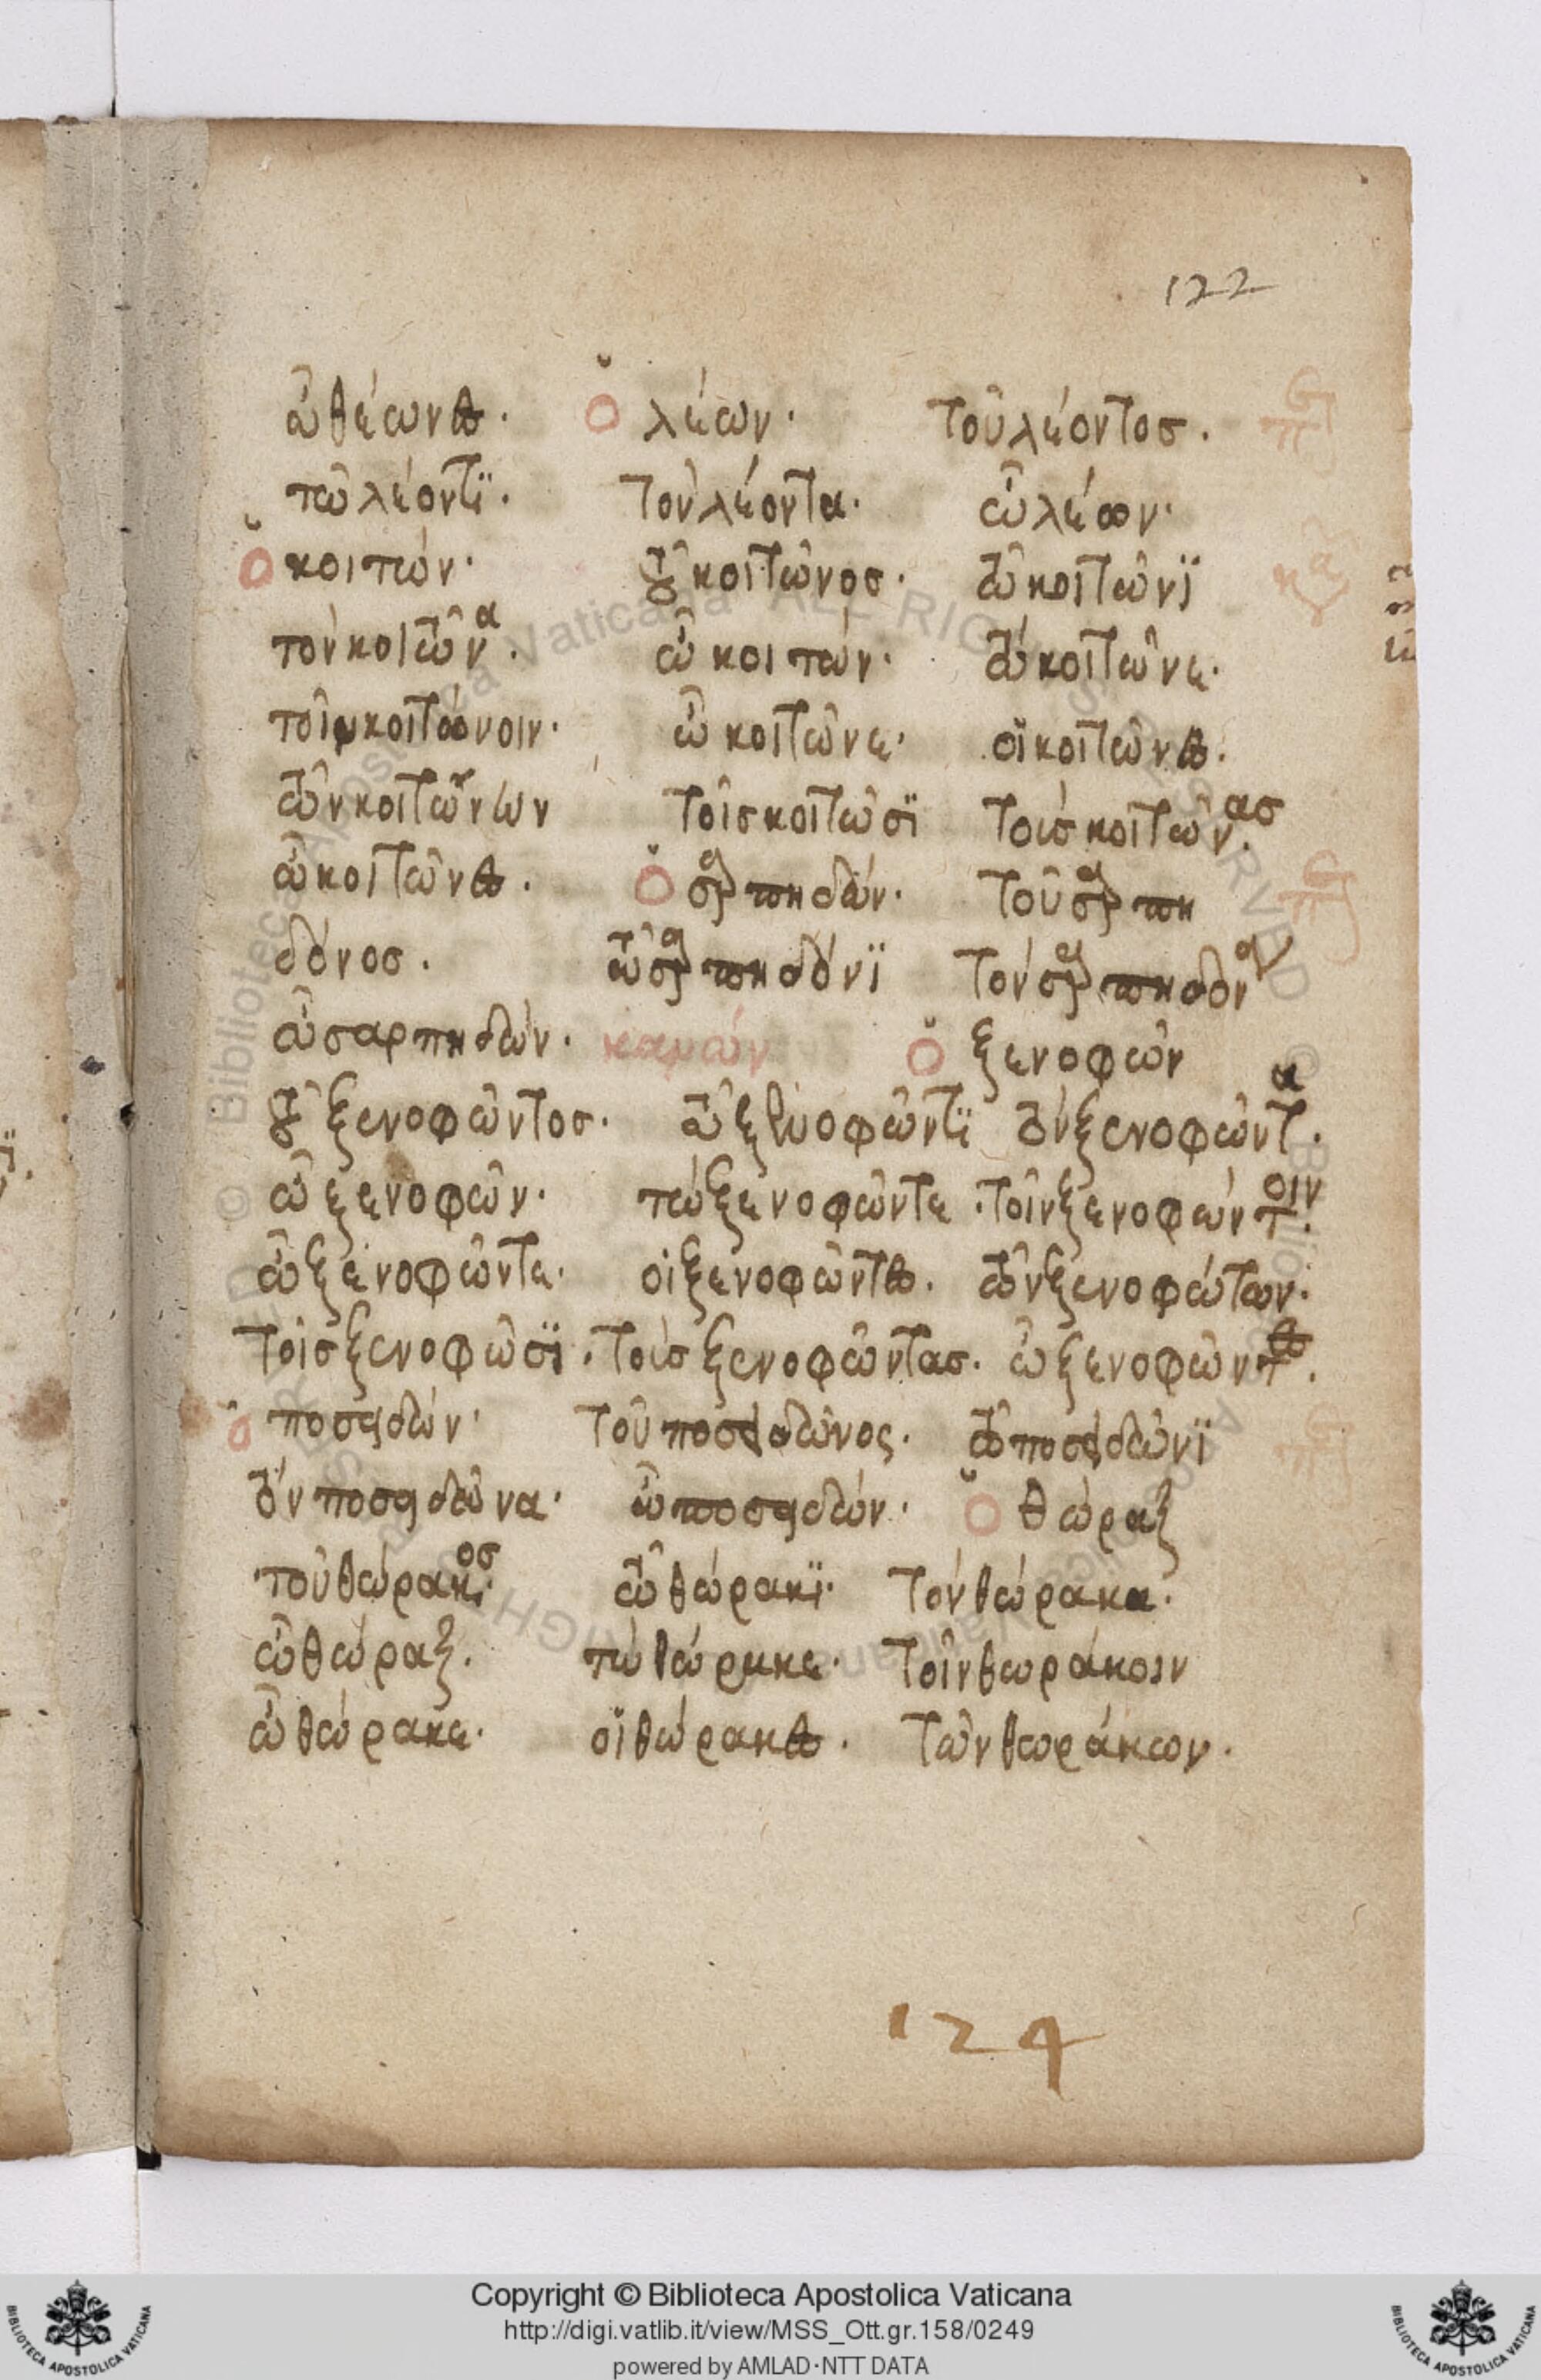 122
ὦ θέωνες · ὁ λέων · τοῦ λέοντος ·
τῶ λέοντϊ · τὸν λέοντα · ὦ λέων ·
ὁ κοιτών · τοῦ κοιτῶνος · τῶ κοιτῶνϊ
τὸν κοιτῶνα · ὦ κοιτών · τὼ κοιτῶνε ·
τοῖν κοιτώνοιν · ὦ κοιτῶνε · οἱ κοιτῶνες ·
τῶν κοιτώνων τοῖς κοιτῶσϊ τοὺς κοιτῶνας ·
ὦ κοιτῶνες · ὁ σαρπηδών · τοῦ σαρπη
δόνος · τῶ σαρπηδόνϊ τὸν σαρπηδόνα
ὦ σαρπηδών · κανών ὁ ξενοφῶν
τοῦ ξενοφῶντος · τῶ ξενοφῶντϊ τὸν ξενοφῶντα ·
ὦ ξενοφῶν · τὼ ξενοφῶντε · τοῖν ξενοφώντοιν ·
ὦ ξενοφῶντε · οἱ ξενοφῶντες · τῶν ξενοφώτων ·
τοῖς ξενοφῶσϊ · τοὺς ξενοφῶντας · ὦ ξενοφῶντες ·
ὁ ποσειδών · τοῦ ποσειδῶνος · τῶ ποσειδῶνϊ
τὸν ποσειδῶνα · ὦ ποσειδών · ὁ θώραξ
τοῦ θώρακος · τῶ θώρακϊ · τὸν θώρακα ·
ὦ θώραξ · τὼ θώρακε · τοῖν θωράκοιν
ὦ θώρακε · οἱ θώρακες · τῶν θωράκων ·
124
Copyright © Biblioteca Apostolica Vaticana
http://digi.vatlib.it/view/MSS_Ott.gr.158/0249
powered by AMLAD·NTT DATA